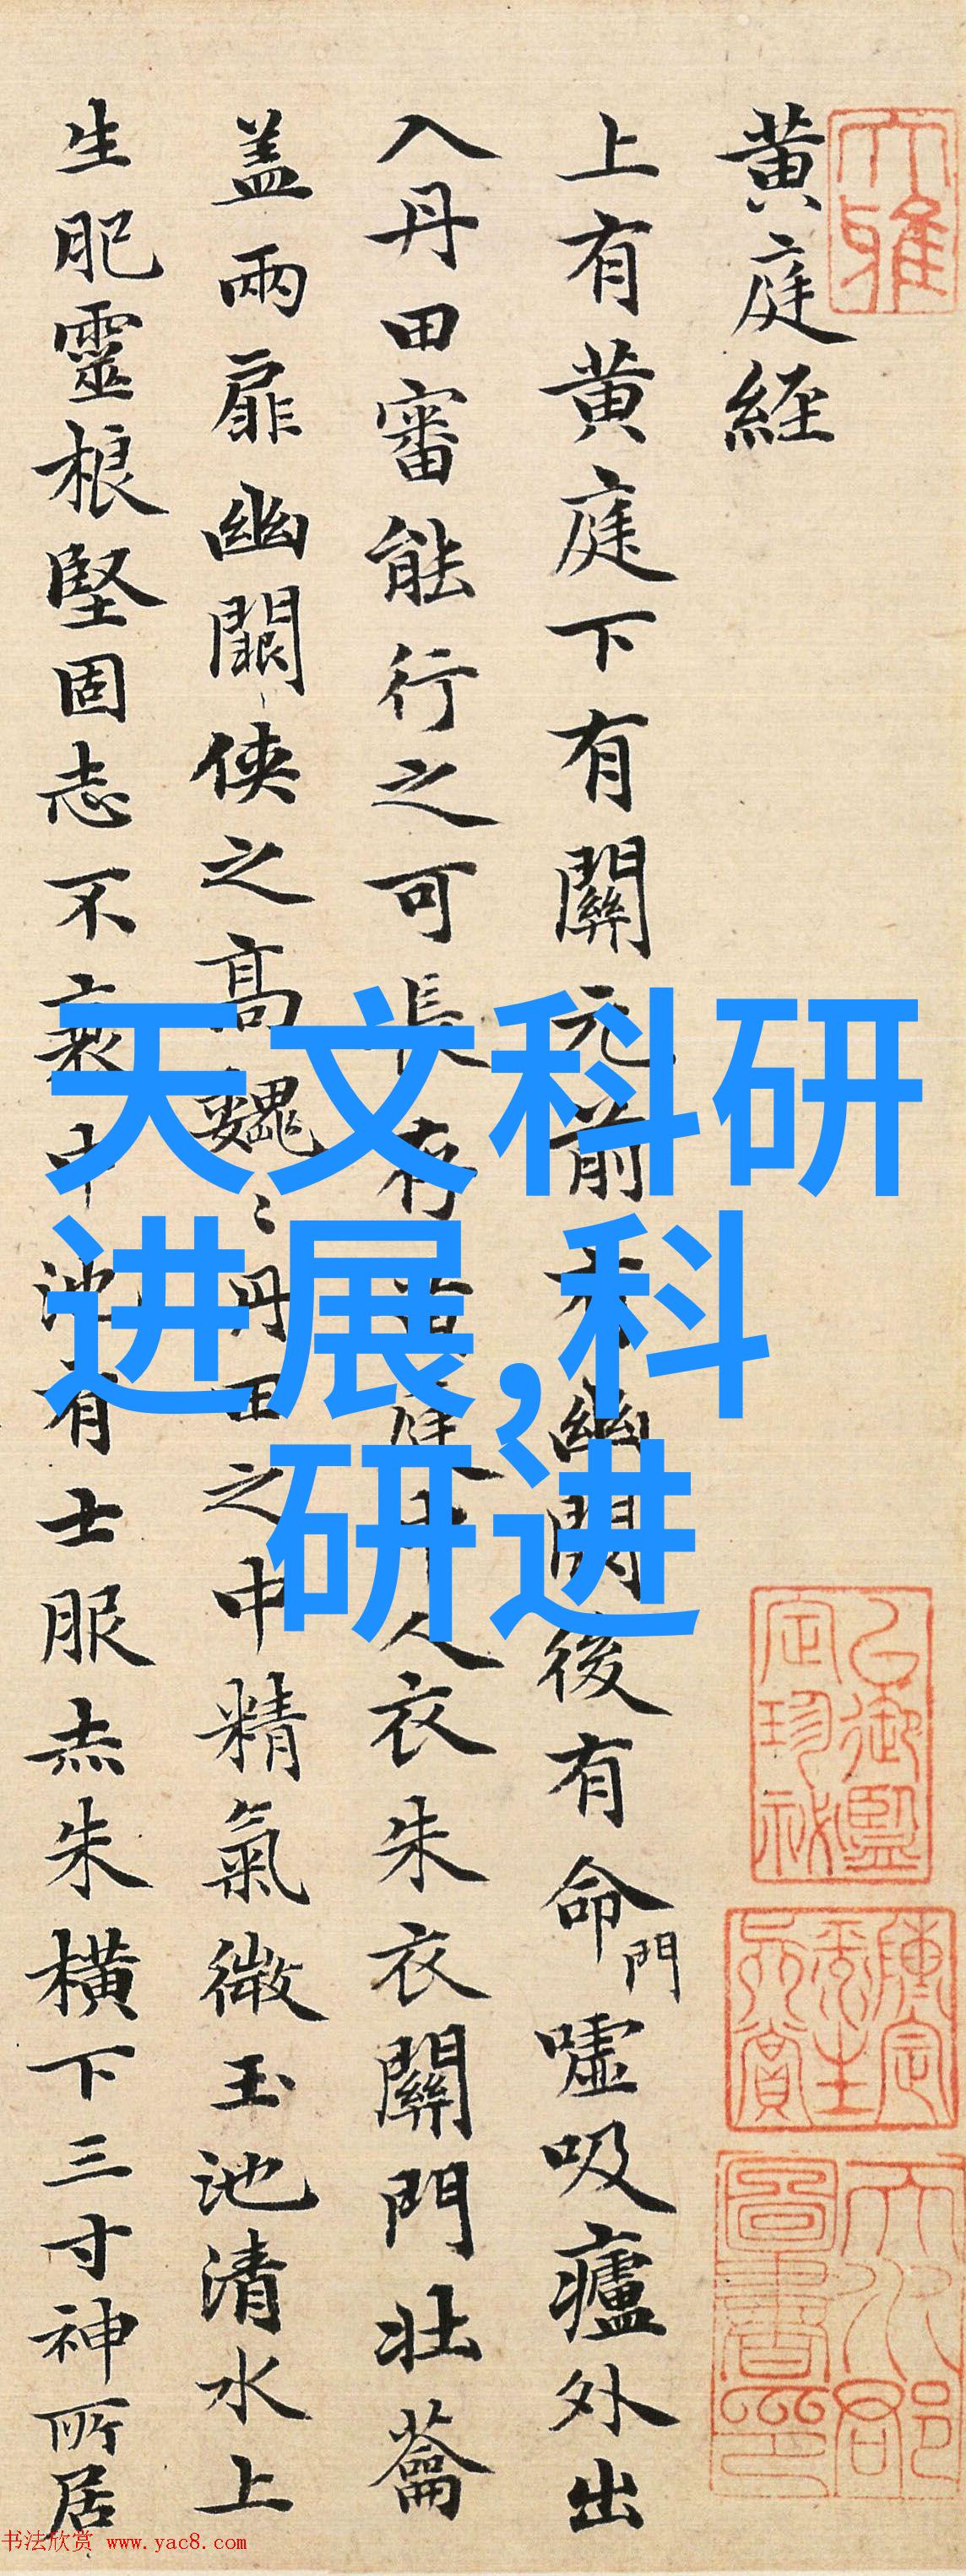 大雅
黄庭経
上有黄庭下有關元前有幽闕後有命門嘘吸廬外出
入丹田審能行之可長存黄庭中人衣朱衣關門壮蘥
盖兩扉幽闕侠之高巍〻丹田之中精氣微玉池清水上
生肥靈根堅固志不衰中池有士服赤朱横下三寸神所居
天文科研
进展,科
研进
书法欣赏 www.yac8.com